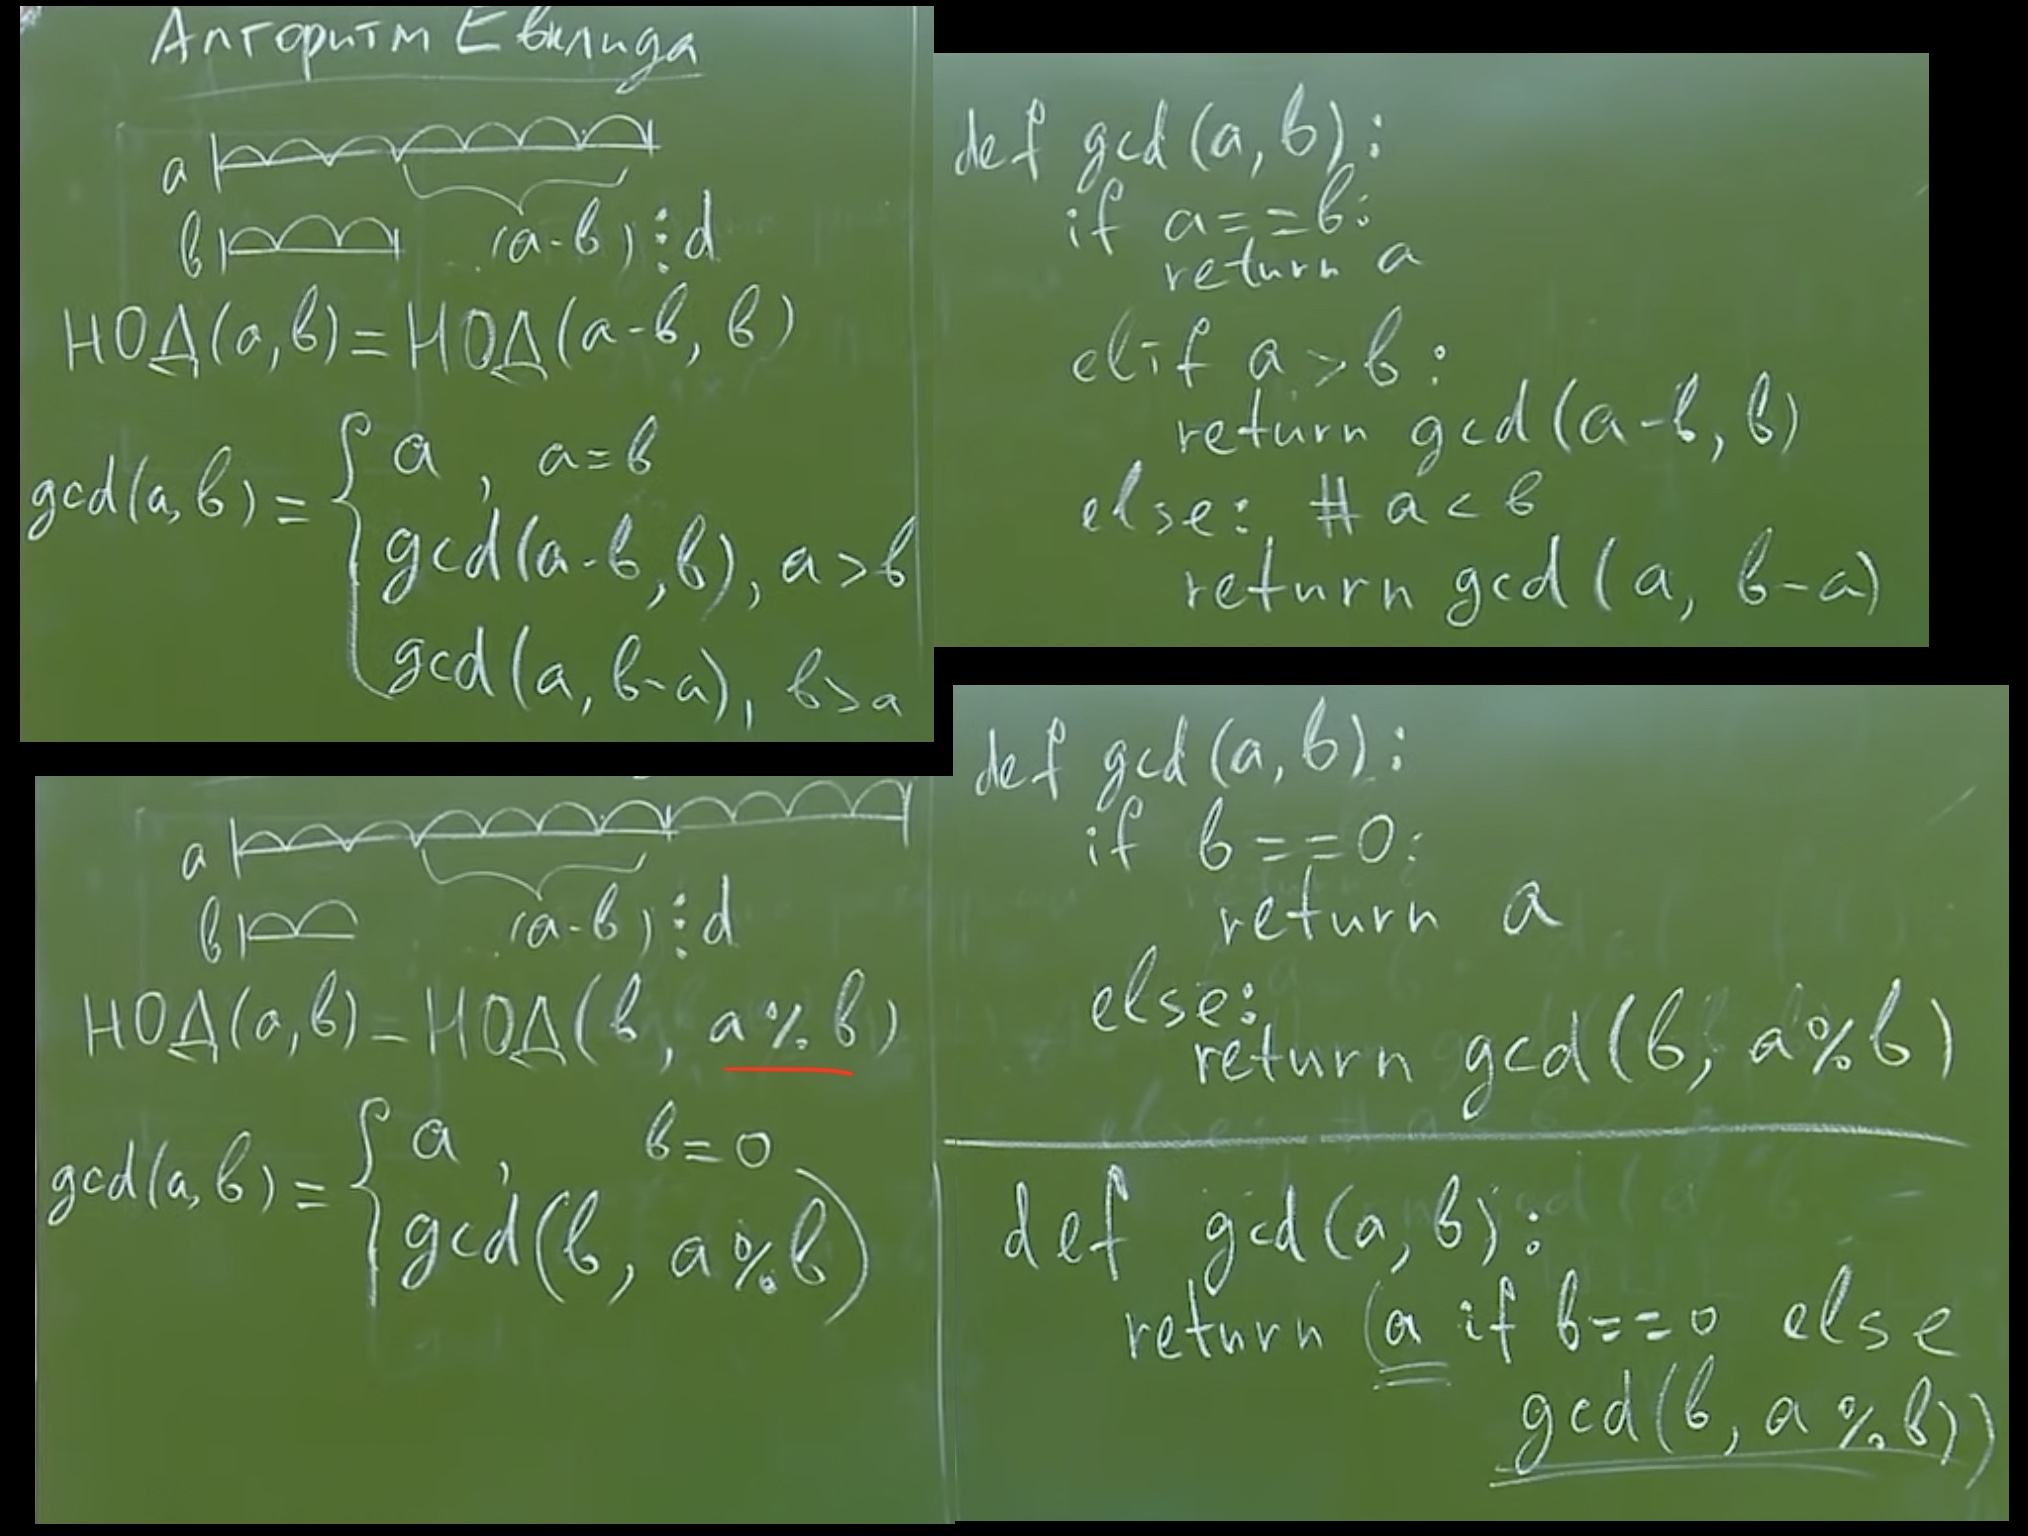 Алгоритм Евклида
a
b (a-b) ⋮ d
НОД(a,b)=НОД(a-b, b)
gcd(a,b) = { a , a=b
gcd(a-b,b), a>b
gcd(a, b-a), b>a
def gcd(a,b):
if a==b:
return a
elif a>b:
return gcd(a-b, b)
else: # a<b
return gcd(a, b-a)
a
b (a-b) ⋮ d
НОД(a,b)=НОД(b, a%b)
gcd(a,b) = { a , b=0
gcd(b, a%b)
def gcd(a,b):
if b==0:
return a
else:
return gcd(b, a%b)
def gcd(a,b):
return (a if b==0 else
gcd(b, a%b))